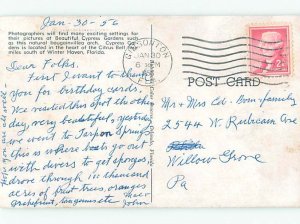 Jan-30-56
Photographers will find many exciting settings for
their pictures at Beautiful Cypress Gardens such
as this natural bouganvillea arch. Cypress Gar-
dens is located in the heart of the Citrus Belt, five
miles south of Winter Haven, Florida.
Dear Folks.
First I want to thank
you for birthday cards.
We visited this spot the other
day, very beautiful, yesterday
we went to Tarpon Springs
this is where boats go out
with divers to get sponges
drove through in thousand
acres of fruit trees, oranges
Grapefruit, tangarines etc
John
Hope you are well
JAN 30
PM
2¢
POST CARD
Mr & Mrs Edw. and family
2544 W. Rubicam Ave
Willow Grove
Pa